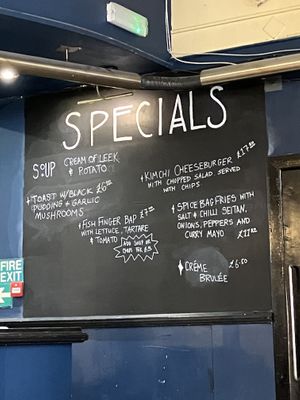 SPECIALS
SOUP
CREAM OF LEEK
& POTATO
TOAST W/ BLACK
PUDDING & GARLIC
MUSHROOMS
FISH FINGER BAP £7.00
WITH LETTUCE, TARTARE
& TOMATO
KIMCHI CHEESEBURGER
WITH CHOPPED SALAD. SERVED
WITH CHIPS
SPICE BAG FRIES WITH
SALT & CHILLI SEITAN,
ONIONS, PEPPERS AND
CURRY MAYO
CRÈME £6.50
BRULÉE
FIRE
EXIT